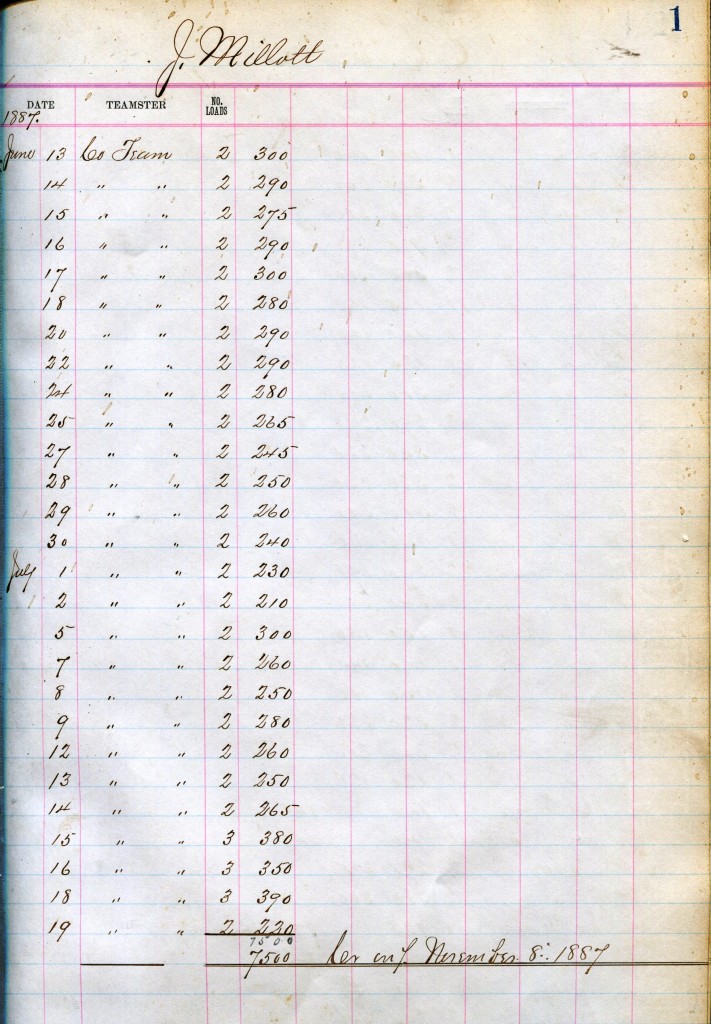 1
J. Millott
DATE TEAMSTER NO. LOADS
1887.
June 13 Co Team 2 300
14 " " 2 290
15 " " 2 275
16 " " 2 290
17 " " 2 300
18 " " 2 280
20 " " 2 290
22 " " 2 290
24 " " 2 280
25 " " 2 265
27 " " 2 245
28 " " 2 250
29 " " 2 260
30 " " 2 240
July 1 " " 2 230
2 " " 2 210
5 " " 2 300
7 " " 2 260
8 " " 2 250
9 " " 2 280
12 " " 2 260
13 " " 2 250
14 " " 2 265
15 " " 3 380
16 " " 3 350
18 " " 3 390
19 " " 2 220
7500
7500 November 8. 1887